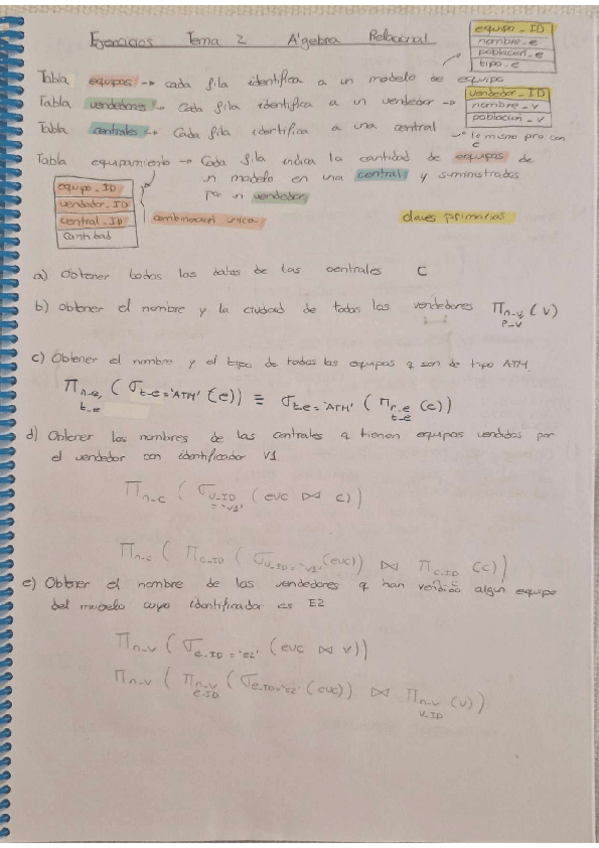 Ejercicios Tema 2 Álgebra Relacional
equipo_ID
nombre_e
poblacion_e
tipo_e
Tabla equipos → cada fila identifica a un modelo de equipo
Tabla vendedores → Cada fila identifica a un vendedor →
vendedor_ID
nombre_v
poblacion_v
Tabla centrales → Cada fila identifica a una central
→ lo mismo pro con c
Tabla equipamiento → Cada fila indica la cantidad de equipos de
un modelo en una central y suministrados
por un vendedor
equipo_ID
vendedor_ID
central_ID
cantidad
combinación única
claves primarias
a) Obtener todos los datos de las centrales C
b) obtener el nombre y la ciudad de todos los vendedores Π n_v, p_v (v)
c) Obtener el nombre y el tipo de todos los equipos q son de tipo ATM.
Π n_e, t_e (σ t_e = 'ATM' (e)) ≡ σ t_e = 'ATM' (Π n_e t_e (e))
d) Obtener los nombres de las centrales q tienen equipos vendidos por
el vendedor con identificador V1
Π n_c (σ v_ID = 'v1' (evc ⋈ c))
Π n_c (Π c_ID (σ v_ID = 'v1' (evc)) ⋈ Π n_c c_ID (c))
e) Obtener el nombre de los vendedores q han vendido algun equipo
del modelo cuyo identificador es E2
Π n_v (σ e_ID = 'E2' (evc ⋈ v))
Π n_v (Π n_v e_ID (σ e_ID = 'E2' (evc)) ⋈ Π n_v v_ID (v))